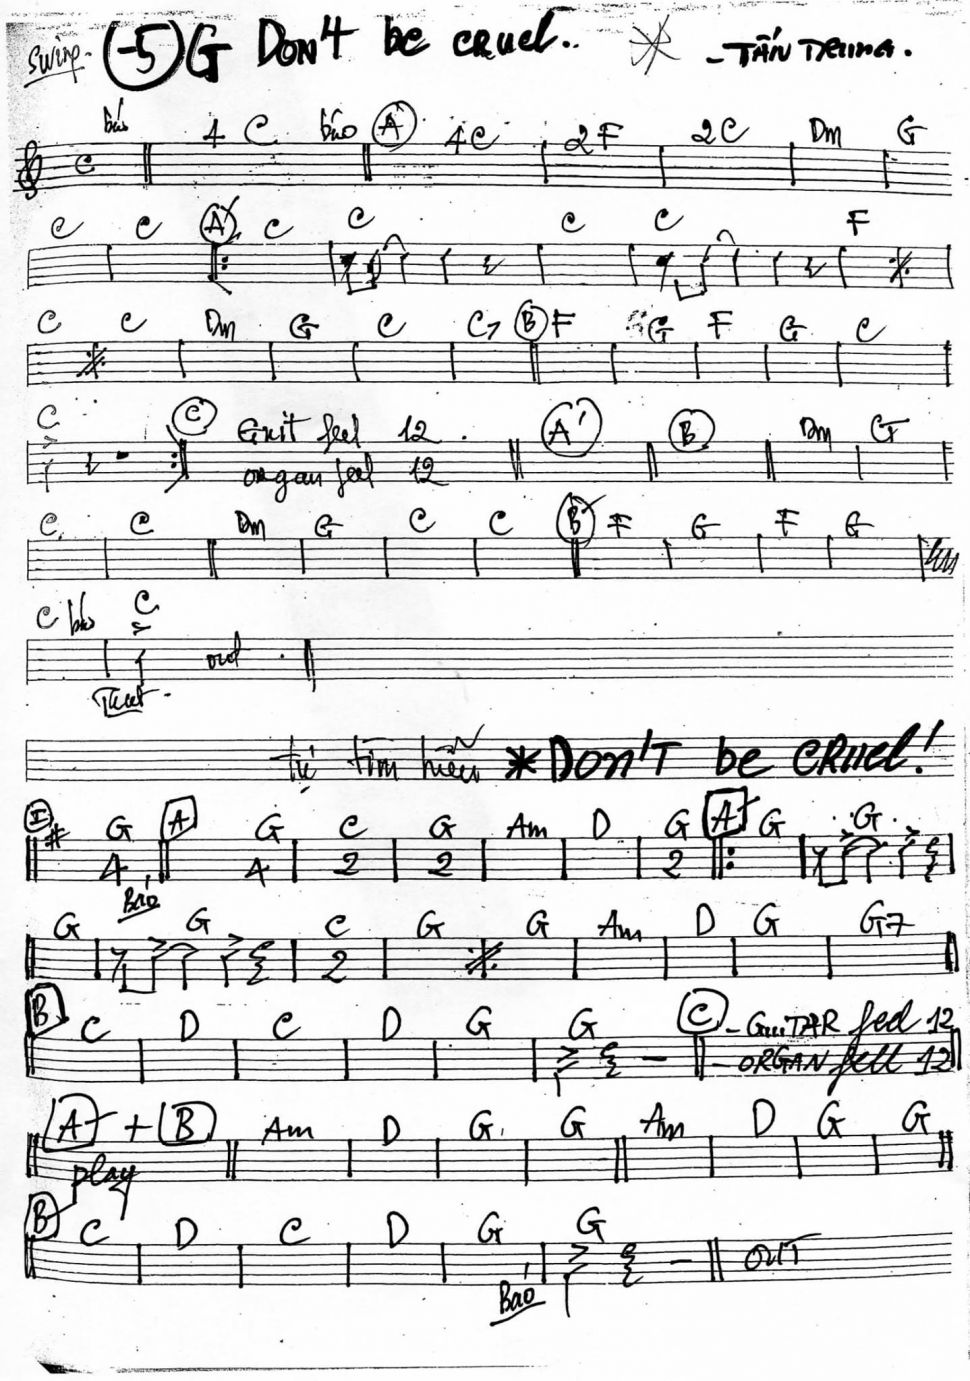 Swing. (-5) G DON'T be CRUEL.. - TẤN TRUNG.
báo 4 C báo A 4C 2F 2C Dm G
C
C C A' C C C C F
C C Dm G C C7 B F G F G C
C C Guit feel 12. A' B Dm G
organ feel 12
C C Dm G C C B' F G F G
C báo C
out.
tự tìm hiểu * DON'T be CRUEL!
I G A G C G Am D G A' G G
4 4 2 2 2
BÁO
G G C G G Am D G G7
2
B C D C D G G C - GUITAR feel 12
- ORGAN feel 12
A' + B Am D G G Am D G G
play
B' C D C D G G
OUT
BÁO